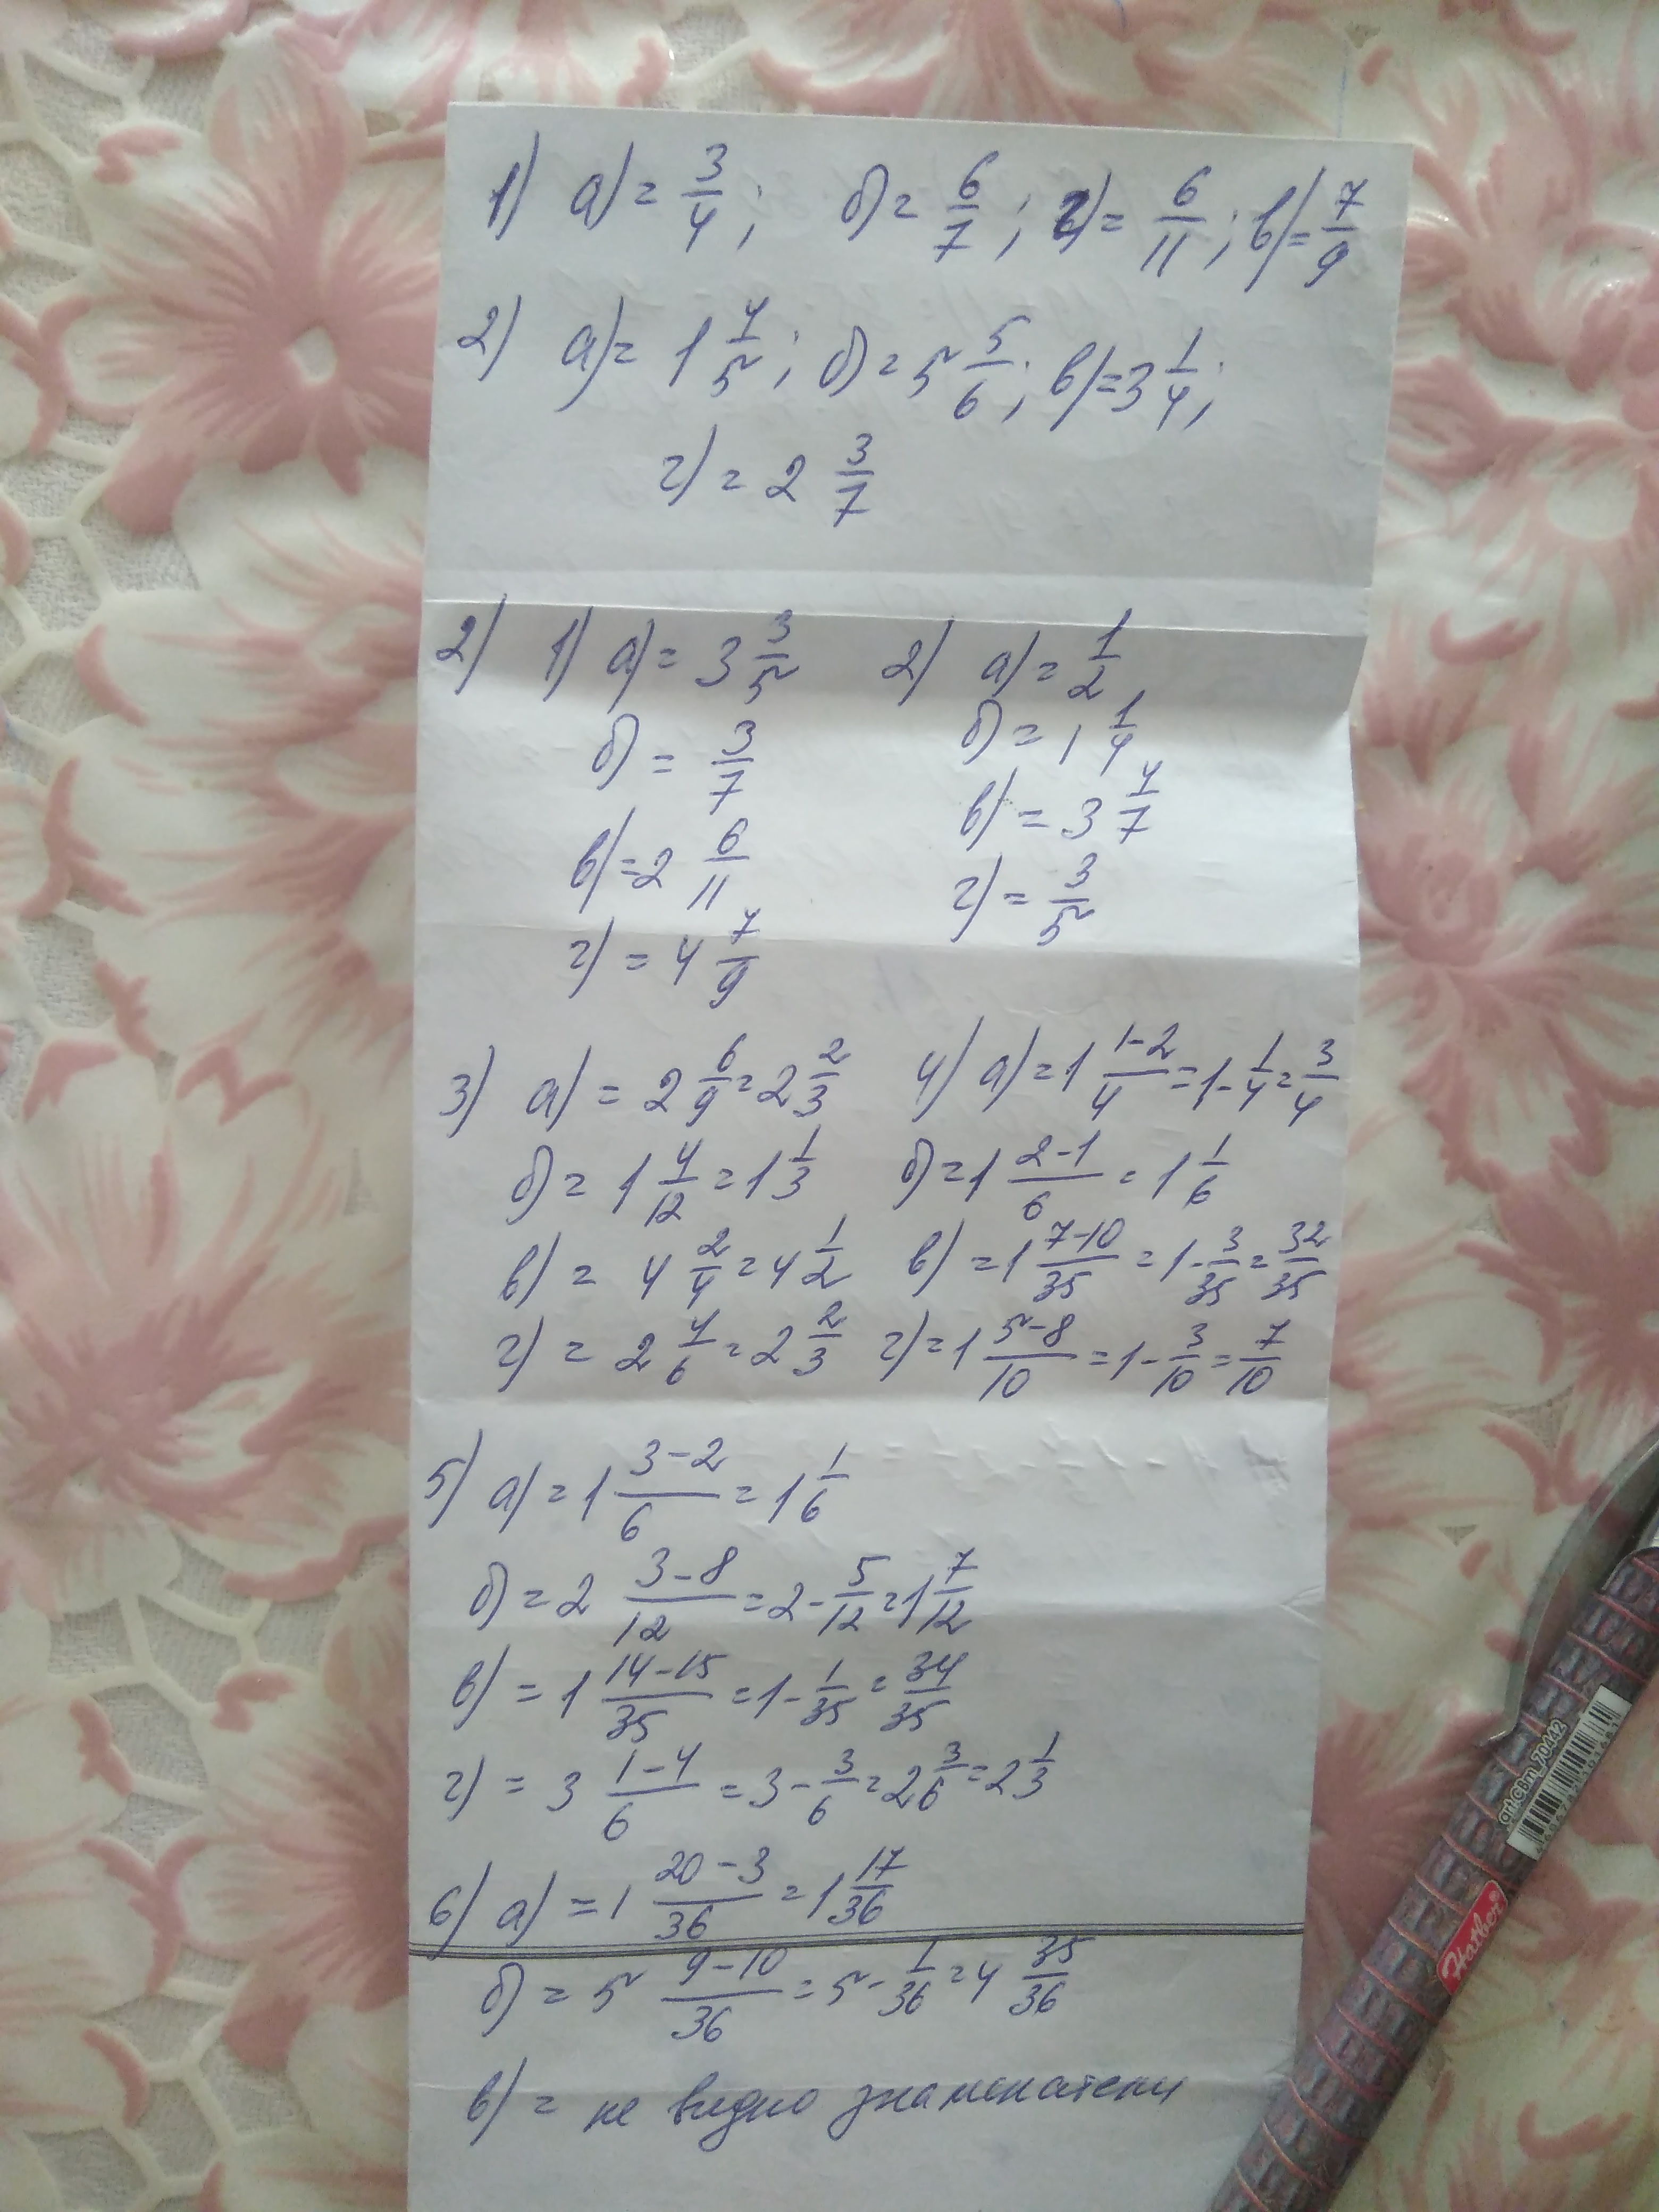 1) а) = 3/4; б) = 6/7; г) = 6/11; в) = 7/9
2) а) = 1 4/5; б) = 5 5/6; в) = 3 1/4;
г) = 2 3/7
2) 1) а) = 3 3/5 2) а) = 1/2
б) = 3/7 б) = 1 1/4
в) = 2 6/11 в) = 3 4/7
г) = 4 7/9 г) = 3/5
3) а) = 2 6/9 = 2 2/3 4) а) = 1 1-2/4 = 1 - 1/4 = 3/4
б) = 1 4/12 = 1 1/3 б) = 1 2-1/6 = 1 1/6
в) = 4 2/4 = 4 1/2 в) = 1 7-10/35 = 1 - 3/35 = 32/35
г) = 2 4/6 = 2 2/3 г) = 1 5-8/10 = 1 - 3/10 = 7/10
5) а) = 1 3-2/6 = 1 1/6
б) = 2 3-8/12 = 2 - 5/12 = 1 7/12
в) = 1 14-15/35 = 1 - 1/35 = 34/35
г) = 3 1-4/6 = 3 - 3/6 = 2 3/6 = 2 1/3
6) а) = 1 20-3/36 = 1 17/36
б) = 5 9-10/36 = 5 - 1/36 = 4 35/36
в) = не видно знаменатели
art.aBm_70442
Hatber